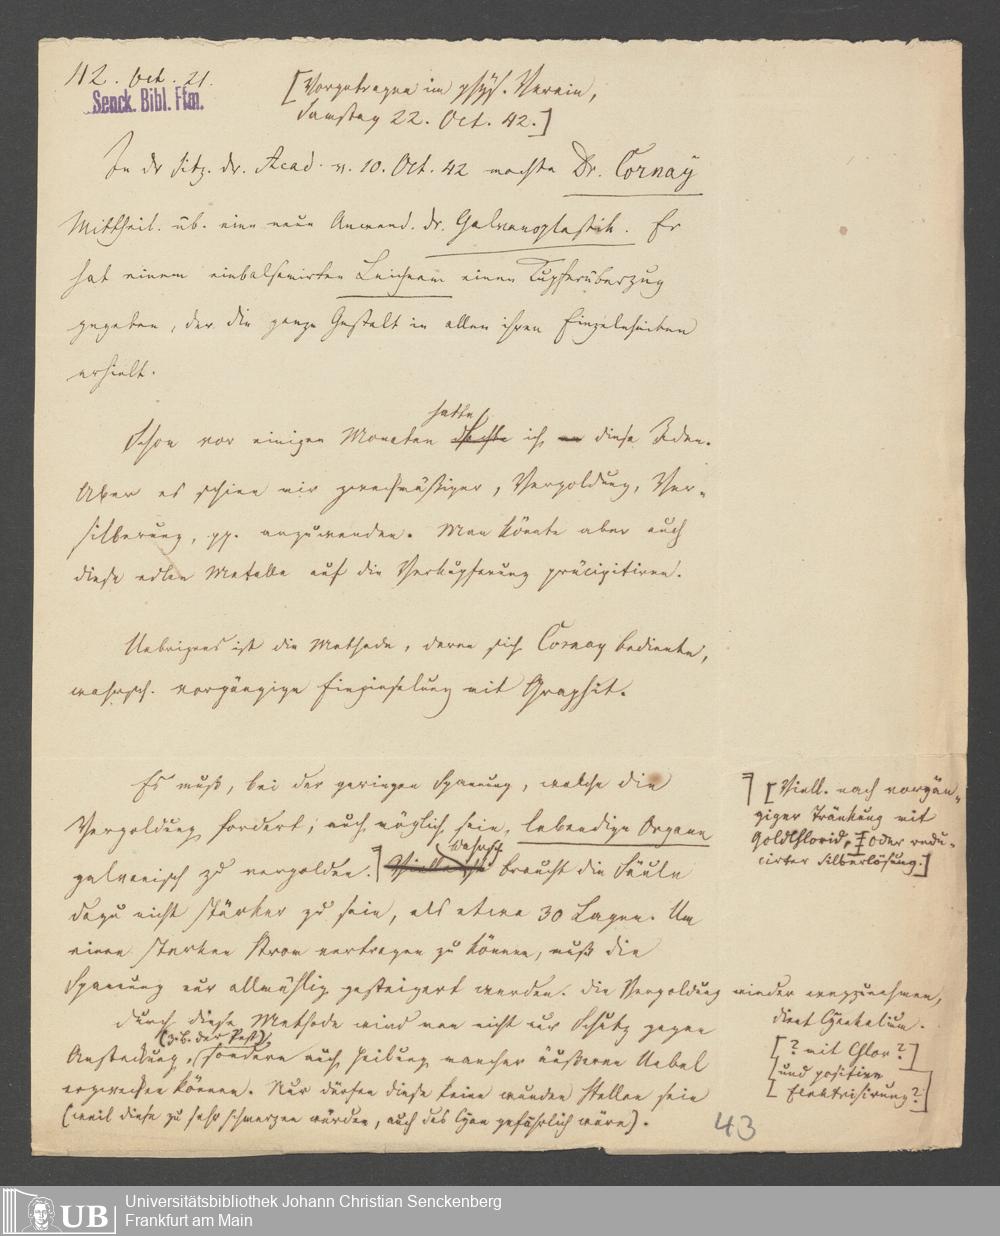 42. Oct. 21.
Senck. Bibl. Ffm.
[Vorgetragen im phys. Verein,
Samstag 22. Oct. 42.]
In dr Sitz. dr. Acad. v. 10. Oct. 42 machte Dr. Cornay
Mittheil. üb. eine neue Anwend. dr. Galvanoplastik. Er
hat einem einbalsamirten Leichnam einen Kupferüberzug
gegeben, der die ganze Gestalt in allen ihren Einzelnheiten
erhielt.
hatte
Schon vor einigen Monaten ich diese Idee.
Aber es schien mir zweckmäßiger, Vergoldung, Ver-
silberung, pp. anzuwenden. Man könnte aber auch
diese edlen Metalle auf die Verkupferung präcipitiren.
Uebrigens ist die Methode, deren sich Cornay bediente,
wahrsch. vorgängige Einpinselung mit Graphit.
Es muß, bei der geringen Spannung, welche die
Vergoldung fordert, auch möglich sein, lebendige Organe
galvanisch zu vergolden. braucht die Säule
dazu nicht stärker zu sein, als etwa 30 Lagen. Um
einen starken Strom vertragen zu können, muß die
Spannung nur allmählig gesteigert werden. Die Vergoldung wieder wegzunehmen,
durch diese Methode wird man nicht nur Schutz gegen
(z.B. der Pest),
Ansteckung, sondern auch Heilung mancher äußeren Uebel
erzwecken können. Nur dürfen diese keine wunden Stellen sein
(weil diese zu sehr schmerzen würden, auch das Cyan gefährlich wäre).
[Viell. nach vorgän-
giger Tränkung mit
Goldchlorid, oder redu-
cirter Silberlösung.]
dient Cyankalium.
[? mit Chlor?]
[und positive
Elektrisirung?]
43
UB
Universitätsbibliothek Johann Christian Senckenberg
Frankfurt am Main